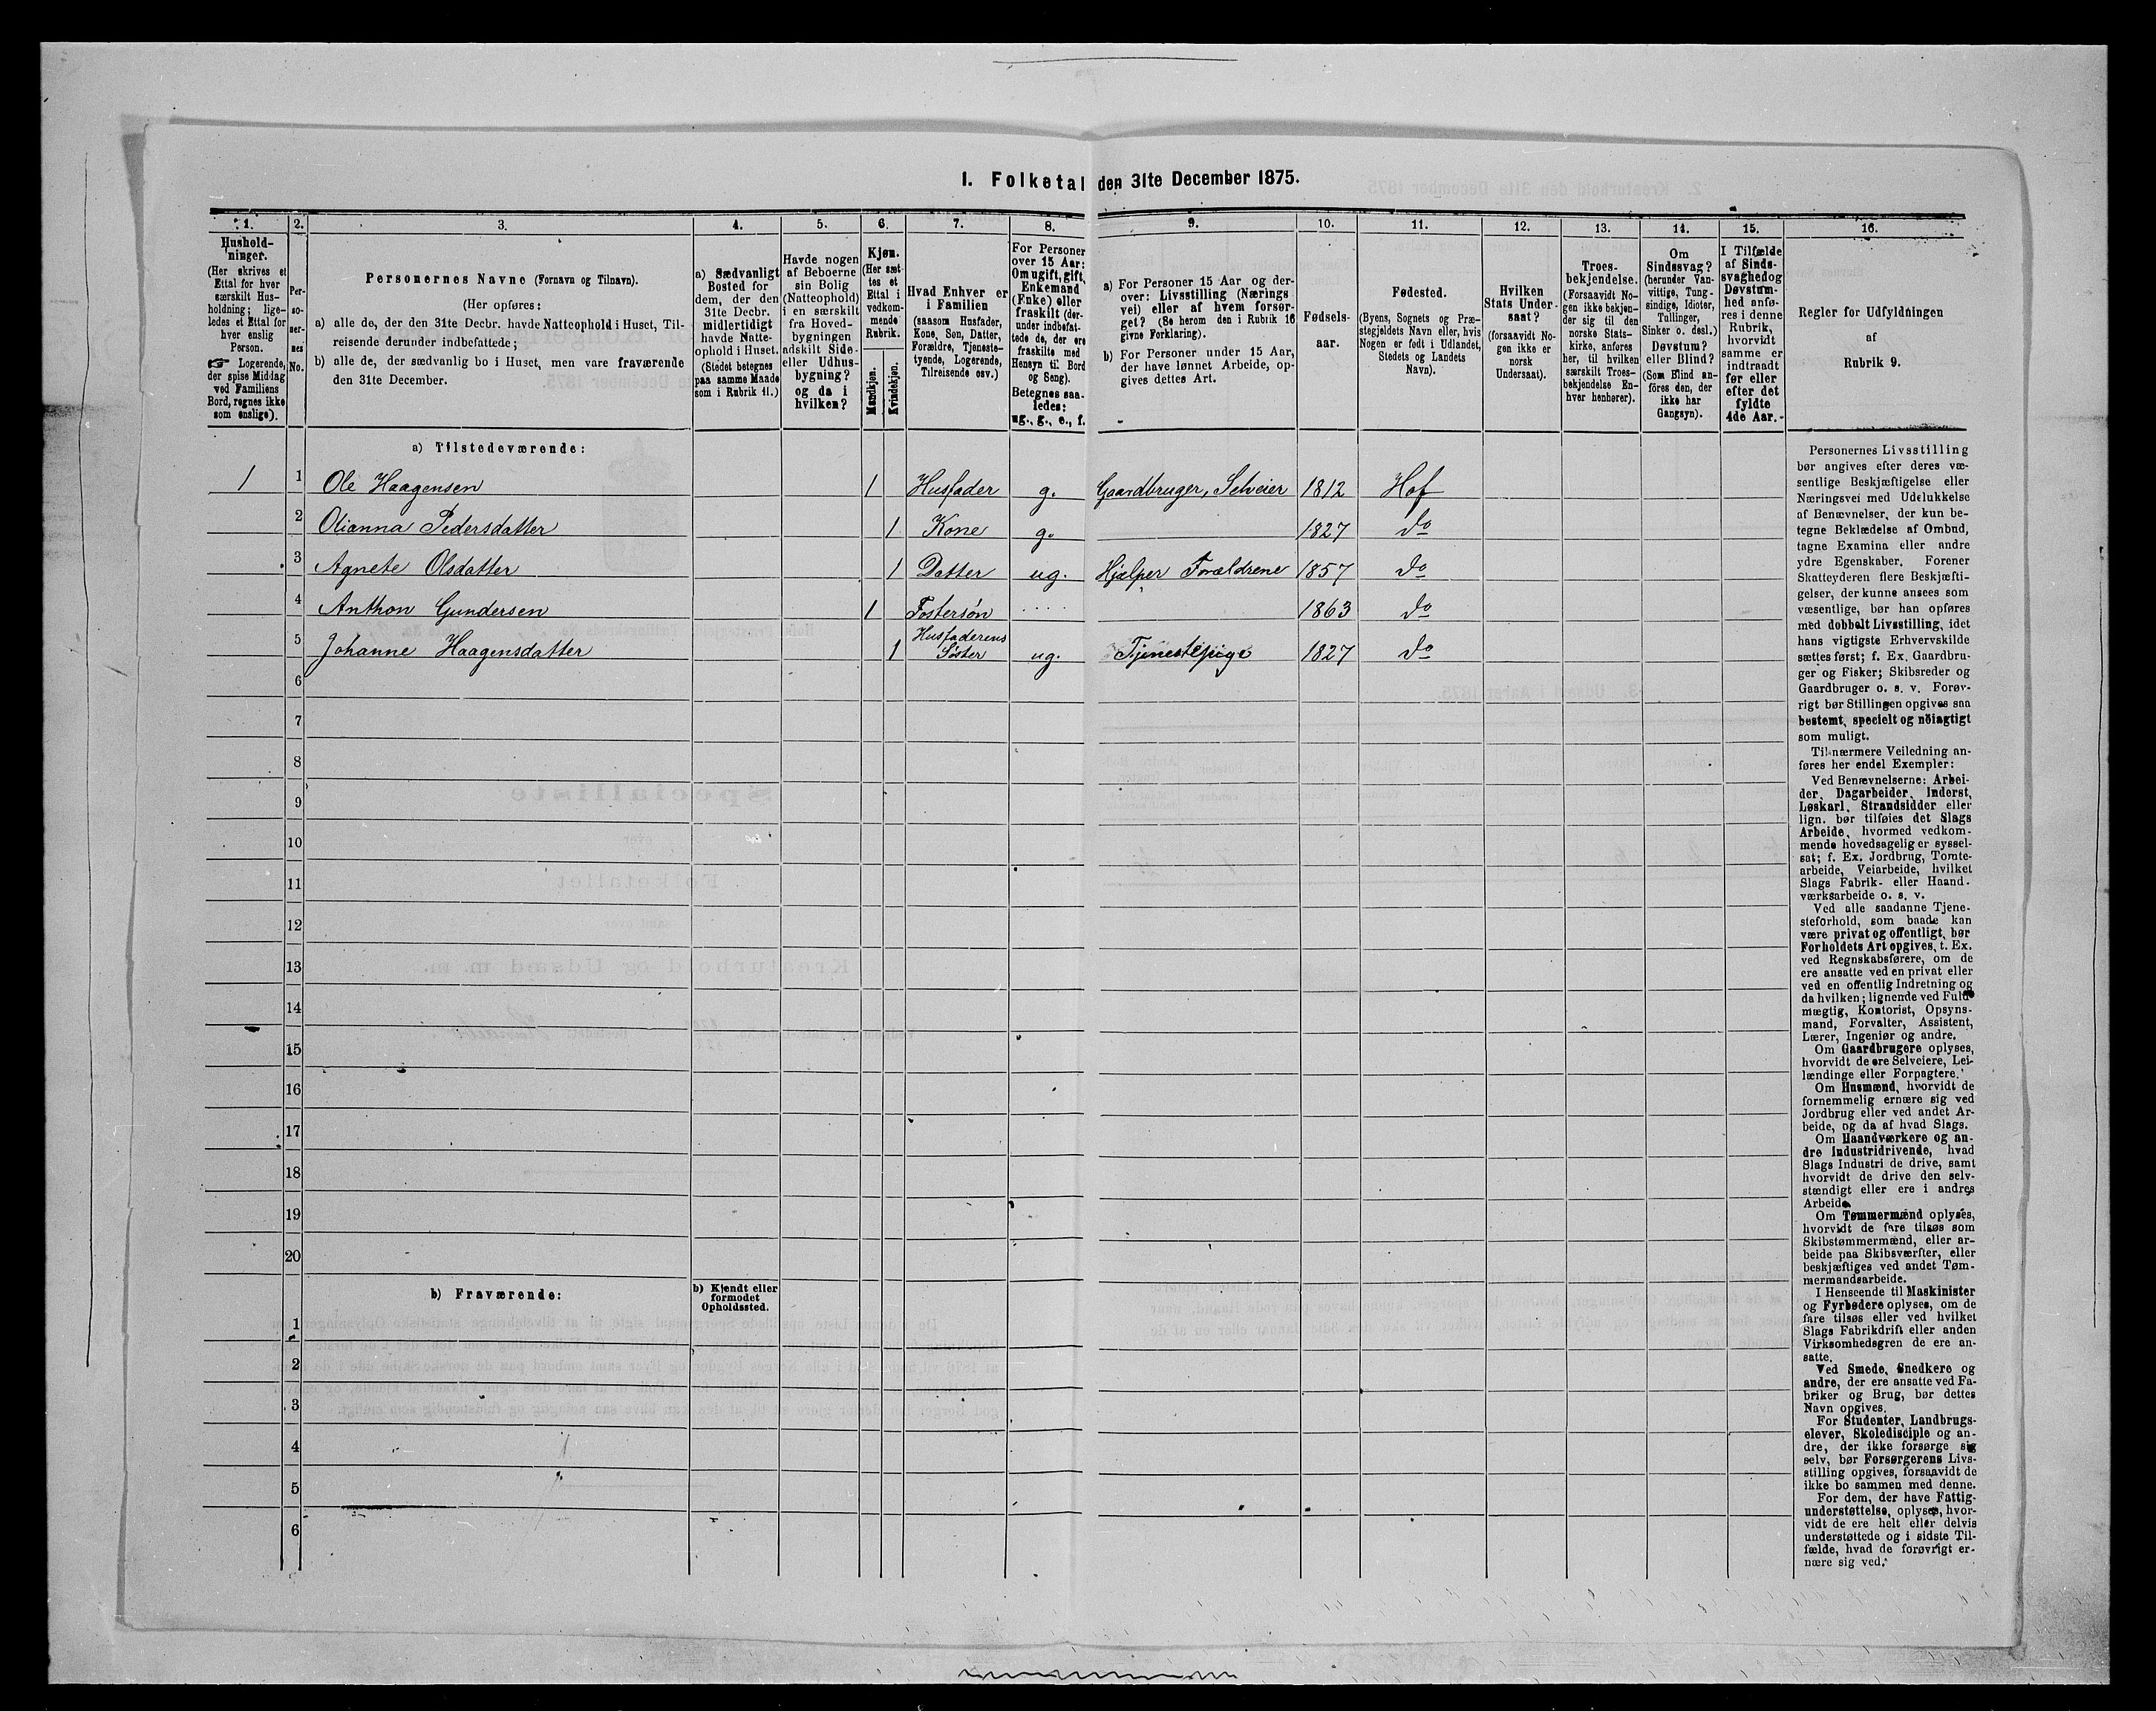 1. Folketal den 31te December 1875.
1.
2.
3.
4.
5.
6.
7.
8.
9.
10.
11.
12.
13.
14.
15.
16.
Hushold-
ninger.
(Her skrives et
Ettal for hver
særskilt Hus-
holdning; lige-
ledes et Ettal for
hver enslig
Person.
☞ Logerende,
der spise Middag
ved Familiens
Bord, regnes ikke
som enslige).
Per-
so-
ner-
nes
No.
Personernes Navne (Fornavn og Tilnavn).
(Her opføres:
a) alle de, der den 31te Decbr. havde Natteophold i Huset, Til-
reisende derunder indbefattede;
b) alle de, der sædvanlig bo i Huset, men vare fraværende
den 31te December.
a) Sædvanligt
Bosted for
dem, der den
31te Decbr.
midlertidigt
havde Natte-
ophold i Huset.
(Stedet betegnes
paa samme Maade
som i Rubrik 11.)
Havde nogen
af Beboerne
sin Bolig
(Natteophold)
i en særskilt
fra Hoved-
bygningen
adskilt Side-
eller Udhus-
bygning?
og da i
hvilken?
Kjøn.
(Her sæt-
tes et
Ettal i
vedkom-
mende
Rubrik.
Mandkjøn.
Kvindekjøn.
Hvad Enhver er
i Familien
(saasom Husfader,
Kone, Søn, Datter,
Forældre, Tjeneste-
tyende, Logerende,
Tilreisende osv.)
For Personer
over 15 Aar:
Om ugift, gift,
Enkemand
(Enke) eller
fraskilt (der-
under indbefat-
tede de, der ere
fraskilte med
Hensyn til Bord
og Seng).
Betegnes saa-
ledes:
ug., g., e., f.
a) For Personer 15 Aar og der-
over: Livsstilling (Nærings
vei) eller af hvem forsør-
get? (Se herom den i Rubrik 16
givne Forklaring).
b) For Personer under 15 Aar,
der have lønnet Arbeide, op-
gives dettes Art.
Fødsels-
aar.
Fødested.
(Byens, Sognets og Præ-
stegjeldets Navn eller, hvis
Nogen er født i Udlandet,
Stedets og Landets
Navn).
Hvilken
Stats Under-
saat?
(forsaavidt No-
gen ikke er
norsk
Undersaat).
Troes-
bekjendelse.
(Forsaavidt No-
gen ikke bekjen-
der sig til den
norske Stats-
kirke, anføres
her, til hvilken
særskilt Troes-
bekjendelse En-
hver henhører).
Om
Sindssvag?
(herunder Van-
vittige, Tung-
sindige, Idioter,
Tullinger,
Sinker o. desl.)
Døvstum?
eller Blind?
(Som Blind an-
føres den, der
ikke har
Gangsyn).
I Tilfælde
af Sinds-
svaghed og
Døvstum-
hed anfø-
res i denne
Rubrik,
hvorvidt
samme er
indtraadt
før eller
efter det
fyldte
4de Aar.
Regler for Udfyldningen
af
Rubrik 9.
a) Tilstedeværende:
1 1 Ole Haagensen 1 Husfader g. Gaardbruger, Selveier 1812 Hof
2 Olianna Pedersdatter 1 Kone g. 1827 do
3 Agnete Olsdatter 1 Datter ug. Hjælper Forældrene 1857 do
4 Anthon Gundersen 1 Fostersøn .... 1863 do
5 Johanne Haagensdatter 1 Husfaderens
Søster ug. Tjenestepige 1827 do
6
7
8
9
10
11
12
13
14
15
16
17
18
19
20
b) Fraværende:
b) Kjendt eller
formodet
Opholdssted.
1
2
3
4
5
6
Personernes Livsstilling
bør angives efter deres væ-
sentlige Beskjæftigelse eller
Næringsvei med Udelukkelse
af Benævnelser, der kun be-
tegne Beklædelse af Ombud,
tagne Examina eller andre
ydre Egenskaber. Forener
Skatteyderen flere Beskjæfti-
gelser, der kunne ansees som
væsentlige, bør han opføres
med dobbelt Livsstilling, idet
hans vigtigste Erhvervskilde
sættes først; f. Ex. Gaardbru-
ger og Fisker; Skibsreder og
Gaardbruger o. s. v. Forøv-
rigt bør Stillingen opgives saa
bestemt, specielt og nöiagtigt
som muligt.
Til nærmere Veiledning an-
føres her endel Exempler:
Ved Benævnelserne: Arbei-
der, Dagarbeider, Inderst,
Løskarl, Strandsidder eller
lign. bør tilføies det Slags
Arbeide, hvormed vedkom-
mende hovedsagelig er syssel-
sat; f. Ex. Jordbrug, Tomte-
arbeide, Veiarbeide, hvilket
Slags Fabrik- eller Haand-
værksarbeide o. s. v.
Ved alle saadanne Tjene-
steforhold, som baade kan
være privat og offentligt, bør
Forholdets Art opgives, t. Ex.
ved Regnskabsførere, om de
ere ansatte ved en privat eller
ved en offentlig Indretning og
da hvilken; lignende ved Fuld-
mægtig, Kontorist, Opsyns-
mand, Forvalter, Assistent,
Lærer, Ingeniør og andre.
Om Gaardbrugere oplyses,
hvorvidt de ere Selveiere, Lei-
lændinge eller Forpagtere.
Om Husmænd, hvorvidt de
fornemmelig ernære sig ved
Jordbrug eller ved andet Ar-
beide, og da af hvad Slags.
Om Haandværkere og an-
dre Industridrivende, hvad
Slags Industri de drive, samt
hvorvidt de drive den selv-
stændigt eller ere i andres
Arbeide.
Om Tømmermænd oplyses,
hvorvidt de fare tilsøs som
Skibstømmermænd, eller ar-
beide paa Skibsværfter, eller
beskjæftiges ved andet Tøm-
mermandsarbeide.
I Henseende til Maskinister
og Fyrbødere oplyses, om de
fare tilsøs eller ved hvilket
Slags Fabrikdrift eller anden
Virksomhedsgren de ere an-
satte.
Ved Smede, Snedkere og
andre, der ere ansatte ved Fa-
briker og Brug, bør dettes
Navn opgives.
For Studenter, Landbrugs-
elever, Skoledisciple og an-
dre, der ikke forsørge sig
selv, bør Forsørgerens Livs-
stilling opgives, forsaavidt de
ikke bo sammen med denne.
For dem, der have Fattig-
understøttelse, oplyses, hvor-
vidt de ere helt eller delvis
understøttede og i sidste Til-
fælde, hvad de forøvrigt er-
nære sig ved.